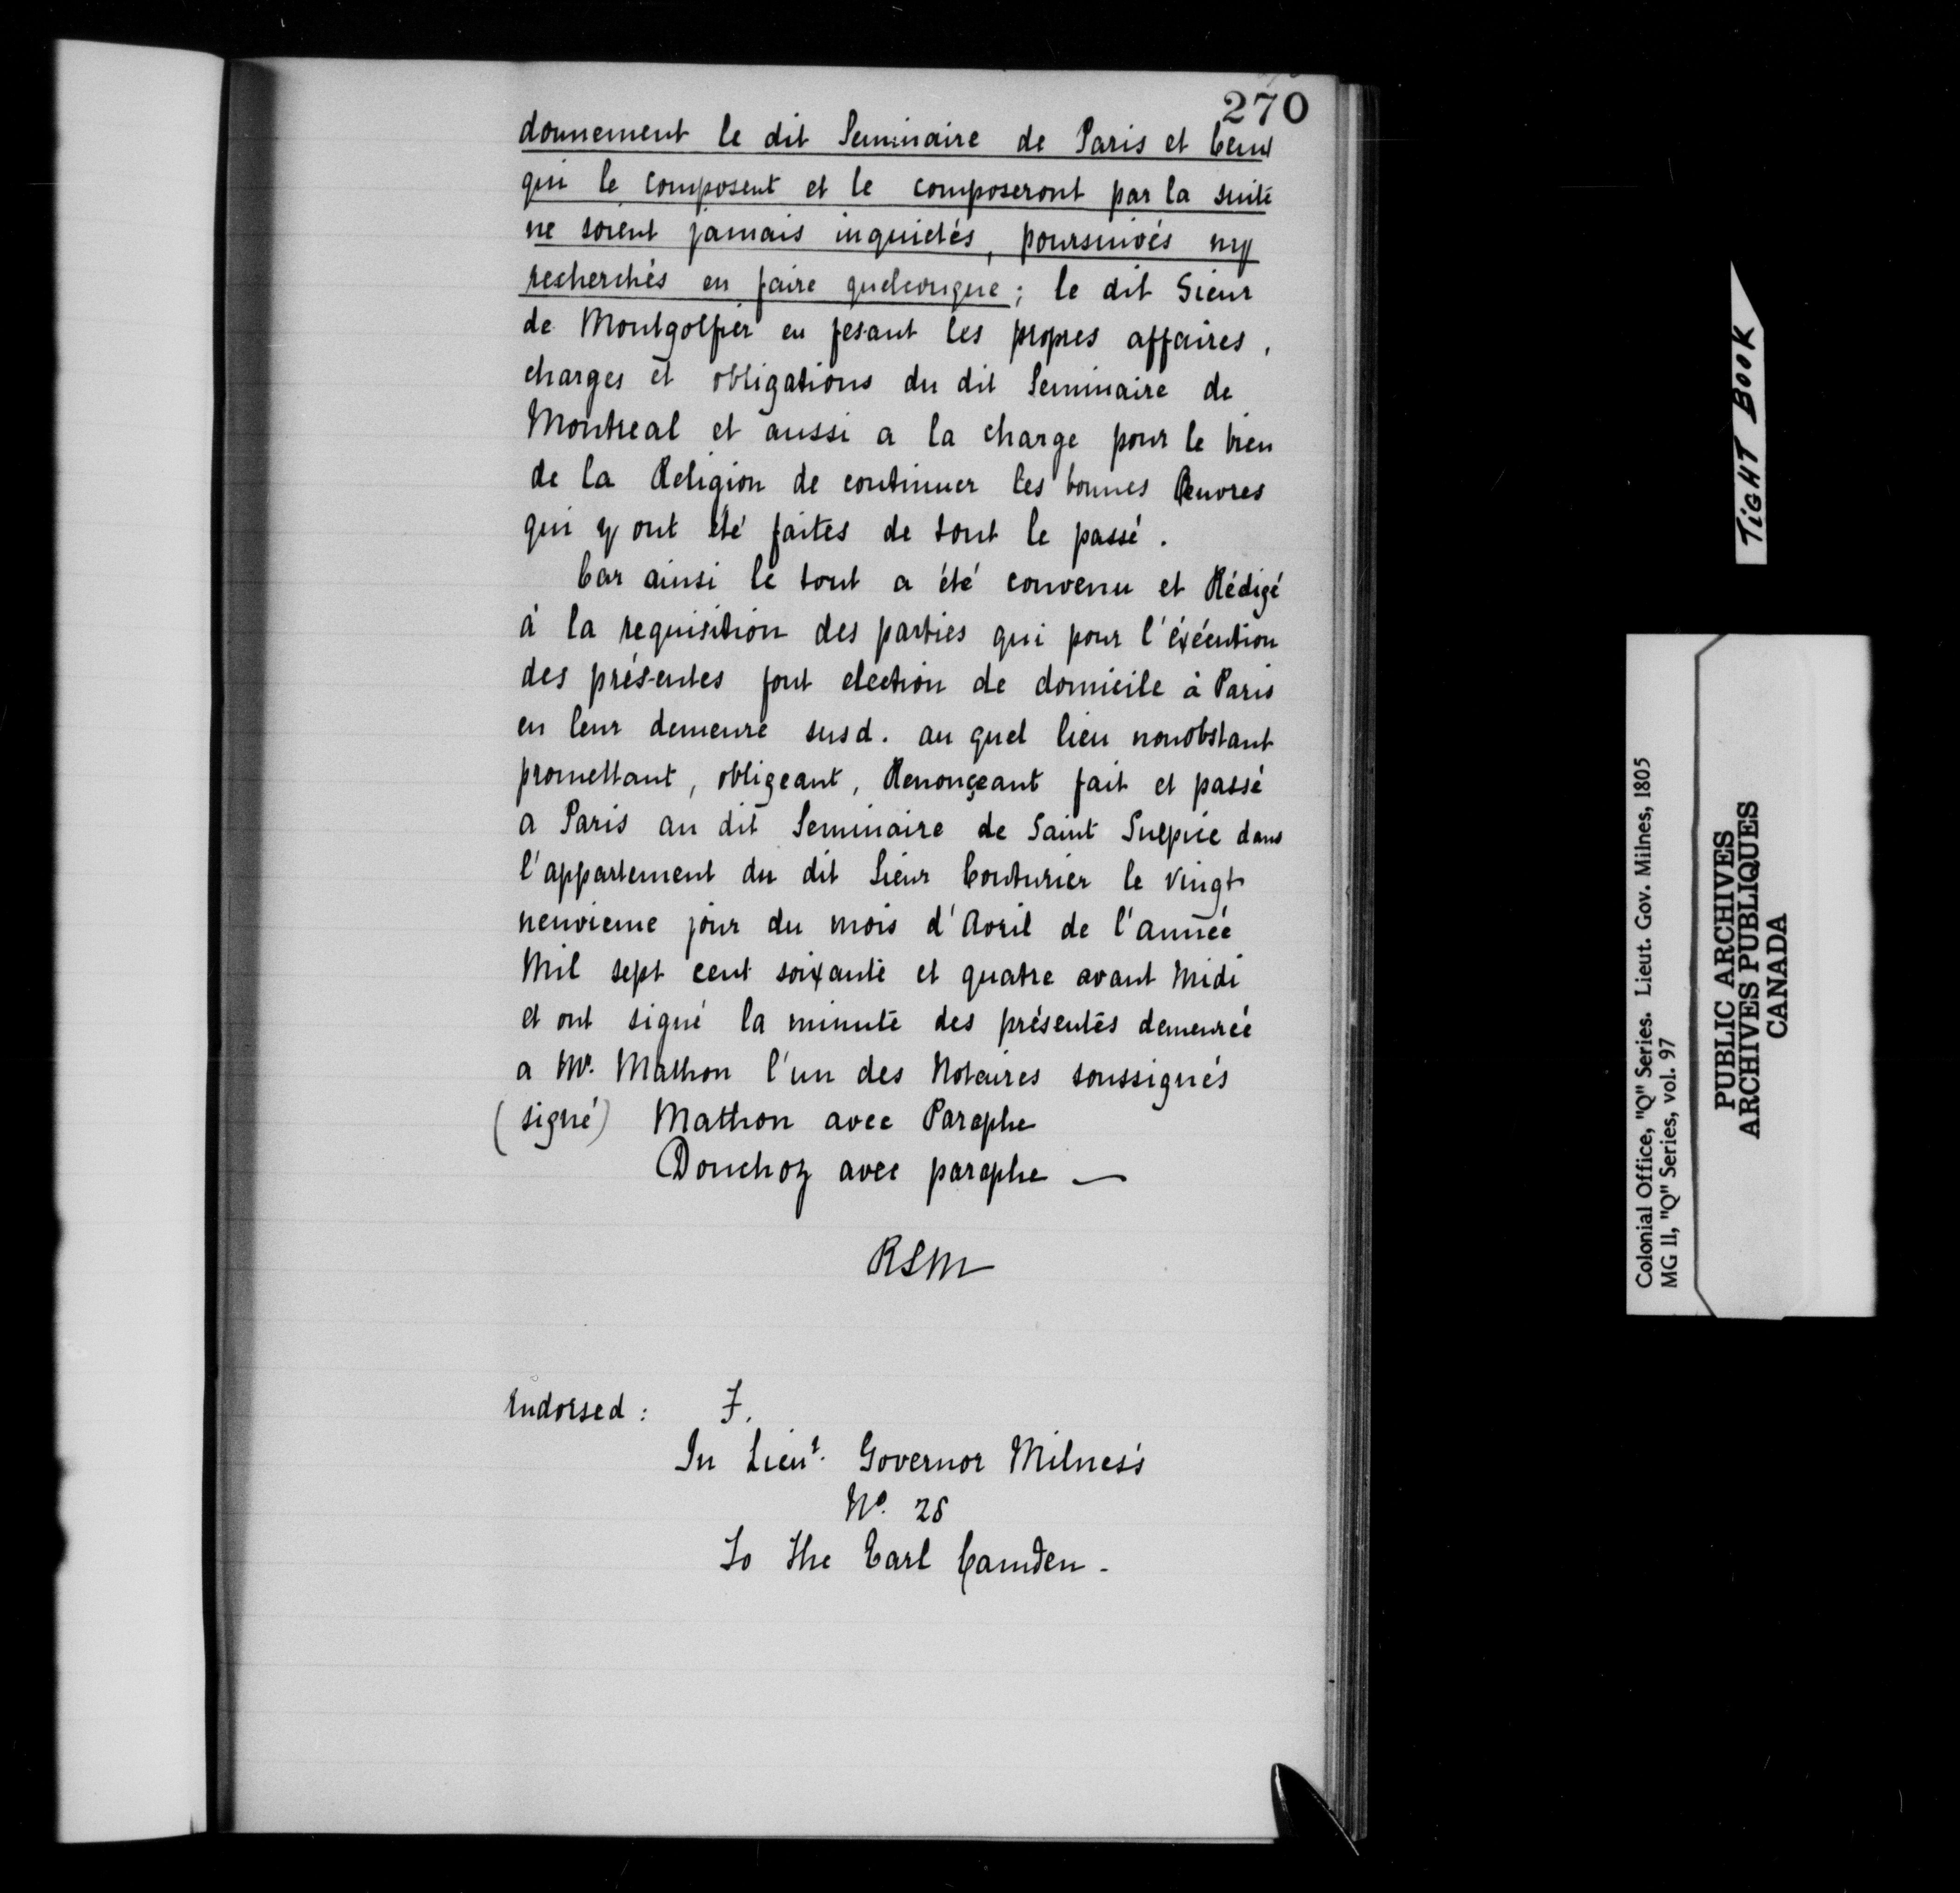 270
donnement le dit Seminaire de Paris et Ceux
qui le composent et le composeront par la suite
ne soient jamais inquietés, poursuivés ny
recherchés en faire quelconque; le dit Sieur
de Montgolfier en fesant les propres affaires,
charges et obligations du dit Seminaire de
Montreal et aussi a la charge pour le bien
de la Religion de continuer les bonnes Œuvres
qui y ont été faites de tout le passé.
Car ainsi le tout a été convenu et Rédigé
à la requisition des parties qui pour l'éxécution
des présentes font election de domicile à Paris
en leur demeure susd. au quel lieu nonobstant
promettant, obligeant, Renonçeant fait et passé
a Paris au dit Seminaire de Saint Sulpice dans
l'appartement du dit Sieur Couturier le vingt
neuvieme jour du mois d'Avril de l'année
Mil sept cent soixante et quatre avant Midi
et ont signé la minute des présentes demeurée
a Mr. Mathon l'un des Notaires soussignés
(signé) Mathon avec Paraphe
Douchoz avec paraphe —
RSM
Endorsed: F.
In Lieut. Governor Milnes's
No. 28
To the Earl Camden.
TIGHT BOOK
Colonial Office, "Q" Series. Lieut. Gov. Milnes, 1805
MG 11, "Q" Series, vol. 97
PUBLIC ARCHIVES
ARCHIVES PUBLIQUES
CANADA